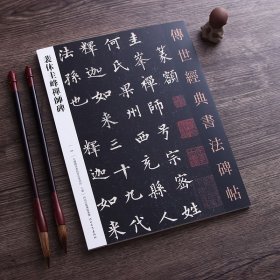 傳世經典書法碑帖
篆額
圭峯禪師号宗密姓
何氏果州西充縣人
釋迦如来三十九代
法孫也釋迦如来
裴休圭峰禪師碑